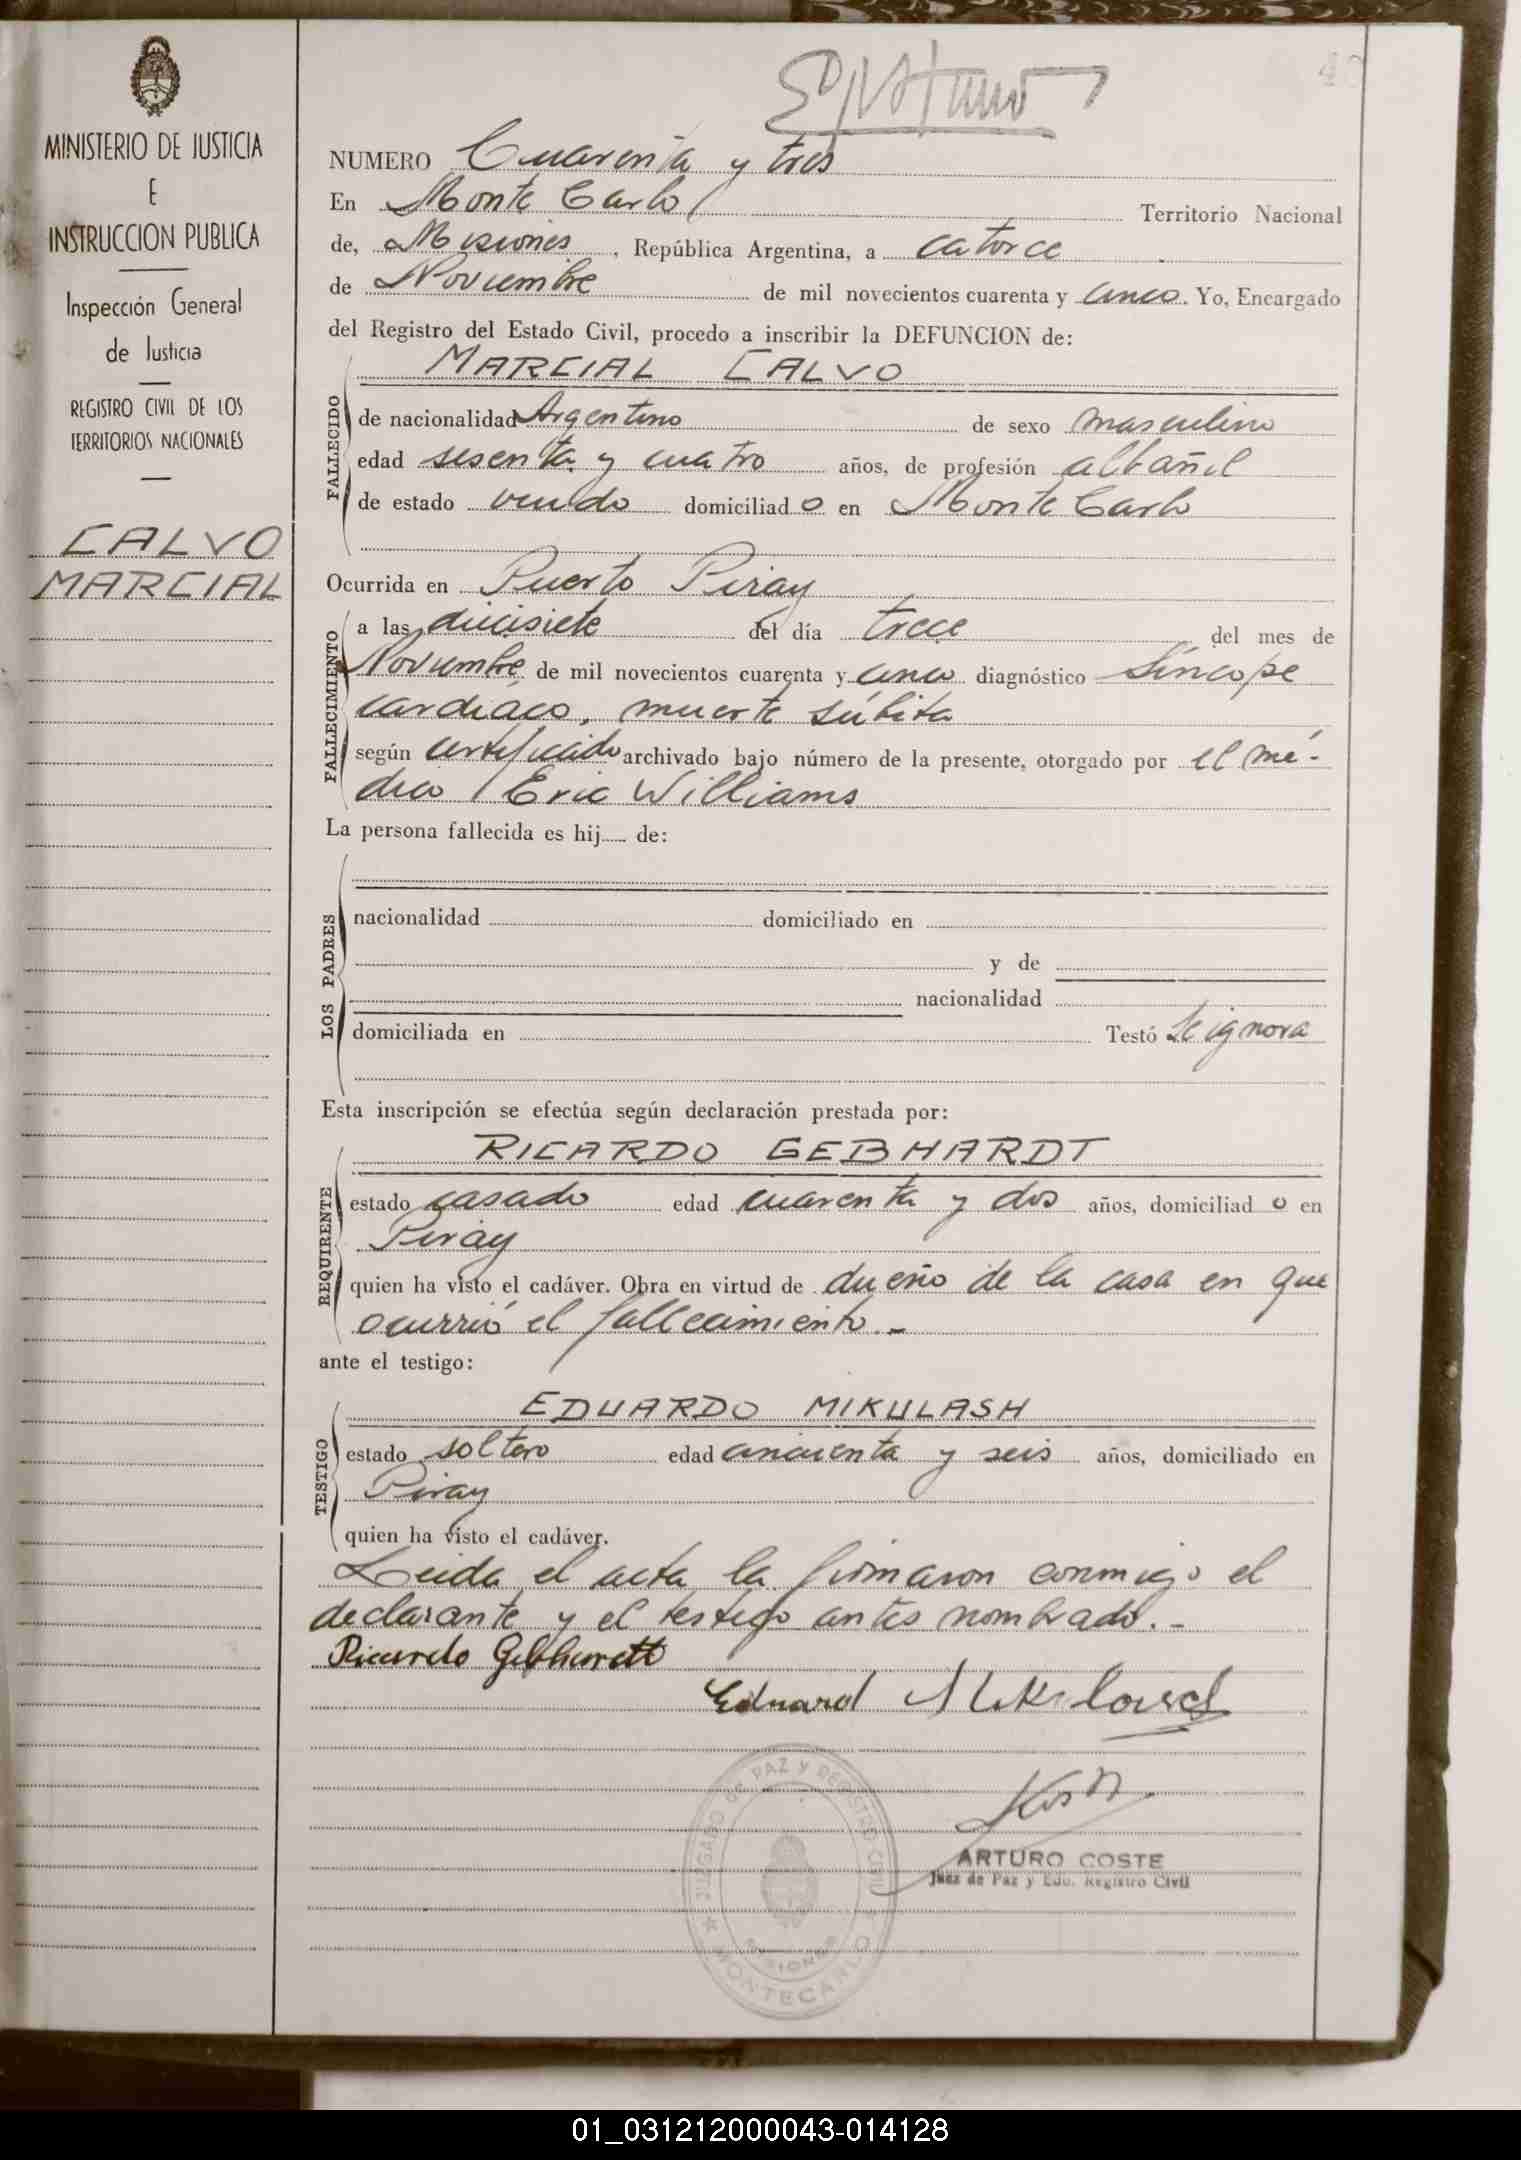 MINISTERIO DE JUSTICIA
E
INSTRUCCION PUBLICA
Inspección General
de Justicia
REGISTRO CIVIL DE LOS
TERRITORIOS NACIONALES
CALVO
MARCIAL
40
NUMERO Cuarenta y tres
En Monte Carlo Territorio Nacional
de, Misiones, República Argentina, a catorce
de Noviembre de mil novecientos cuarenta y cinco. Yo, Encargado
del Registro del Estado Civil, procedo a inscribir la DEFUNCION de:
MARCIAL CALVO
FALLECIDO
de nacionalidad Argentino de sexo masculino
edad sesenta y cuatro años, de profesión albañil
de estado viudo domiciliado en Monte Carlo
Ocurrida en Puerto Piray
FALLECIMIENTO
a las diecisiete del día trece del mes de
Noviembre de mil novecientos cuarenta y cinco diagnóstico Síncope
cardíaco, muerte súbita
según certificado archivado bajo número de la presente, otorgado por el mé-
dico Eric Williams
La persona fallecida es hij de:
LOS PADRES
nacionalidad domiciliado en
y de
nacionalidad
domiciliada en Testó Se ignora
Esta inscripción se efectúa según declaración prestada por:
RICARDO GEBHARDT
REQUIRENTE
estado casado edad cuarenta y dos años, domiciliado en
Piray
quien ha visto el cadáver. Obra en virtud de dueño de la casa en que
ocurrió el fallecimiento.-
ante el testigo:
EDUARDO MIKULASH
TESTIGO
estado soltero edad cincuenta y seis años, domiciliado en
Piray
quien ha visto el cadáver.
Leida el acta la firmaron conmigo el
declarante y el testigo antes nombrado.-
Ricardo Gebhardt
Eduard
JUZGADO DE PAZ Y REGISTRO CIVIL
MISIONES
MONTECARLO
ARTURO COSTE
Juez de Paz y Edo. Registro Civil
01_031212000043-014128